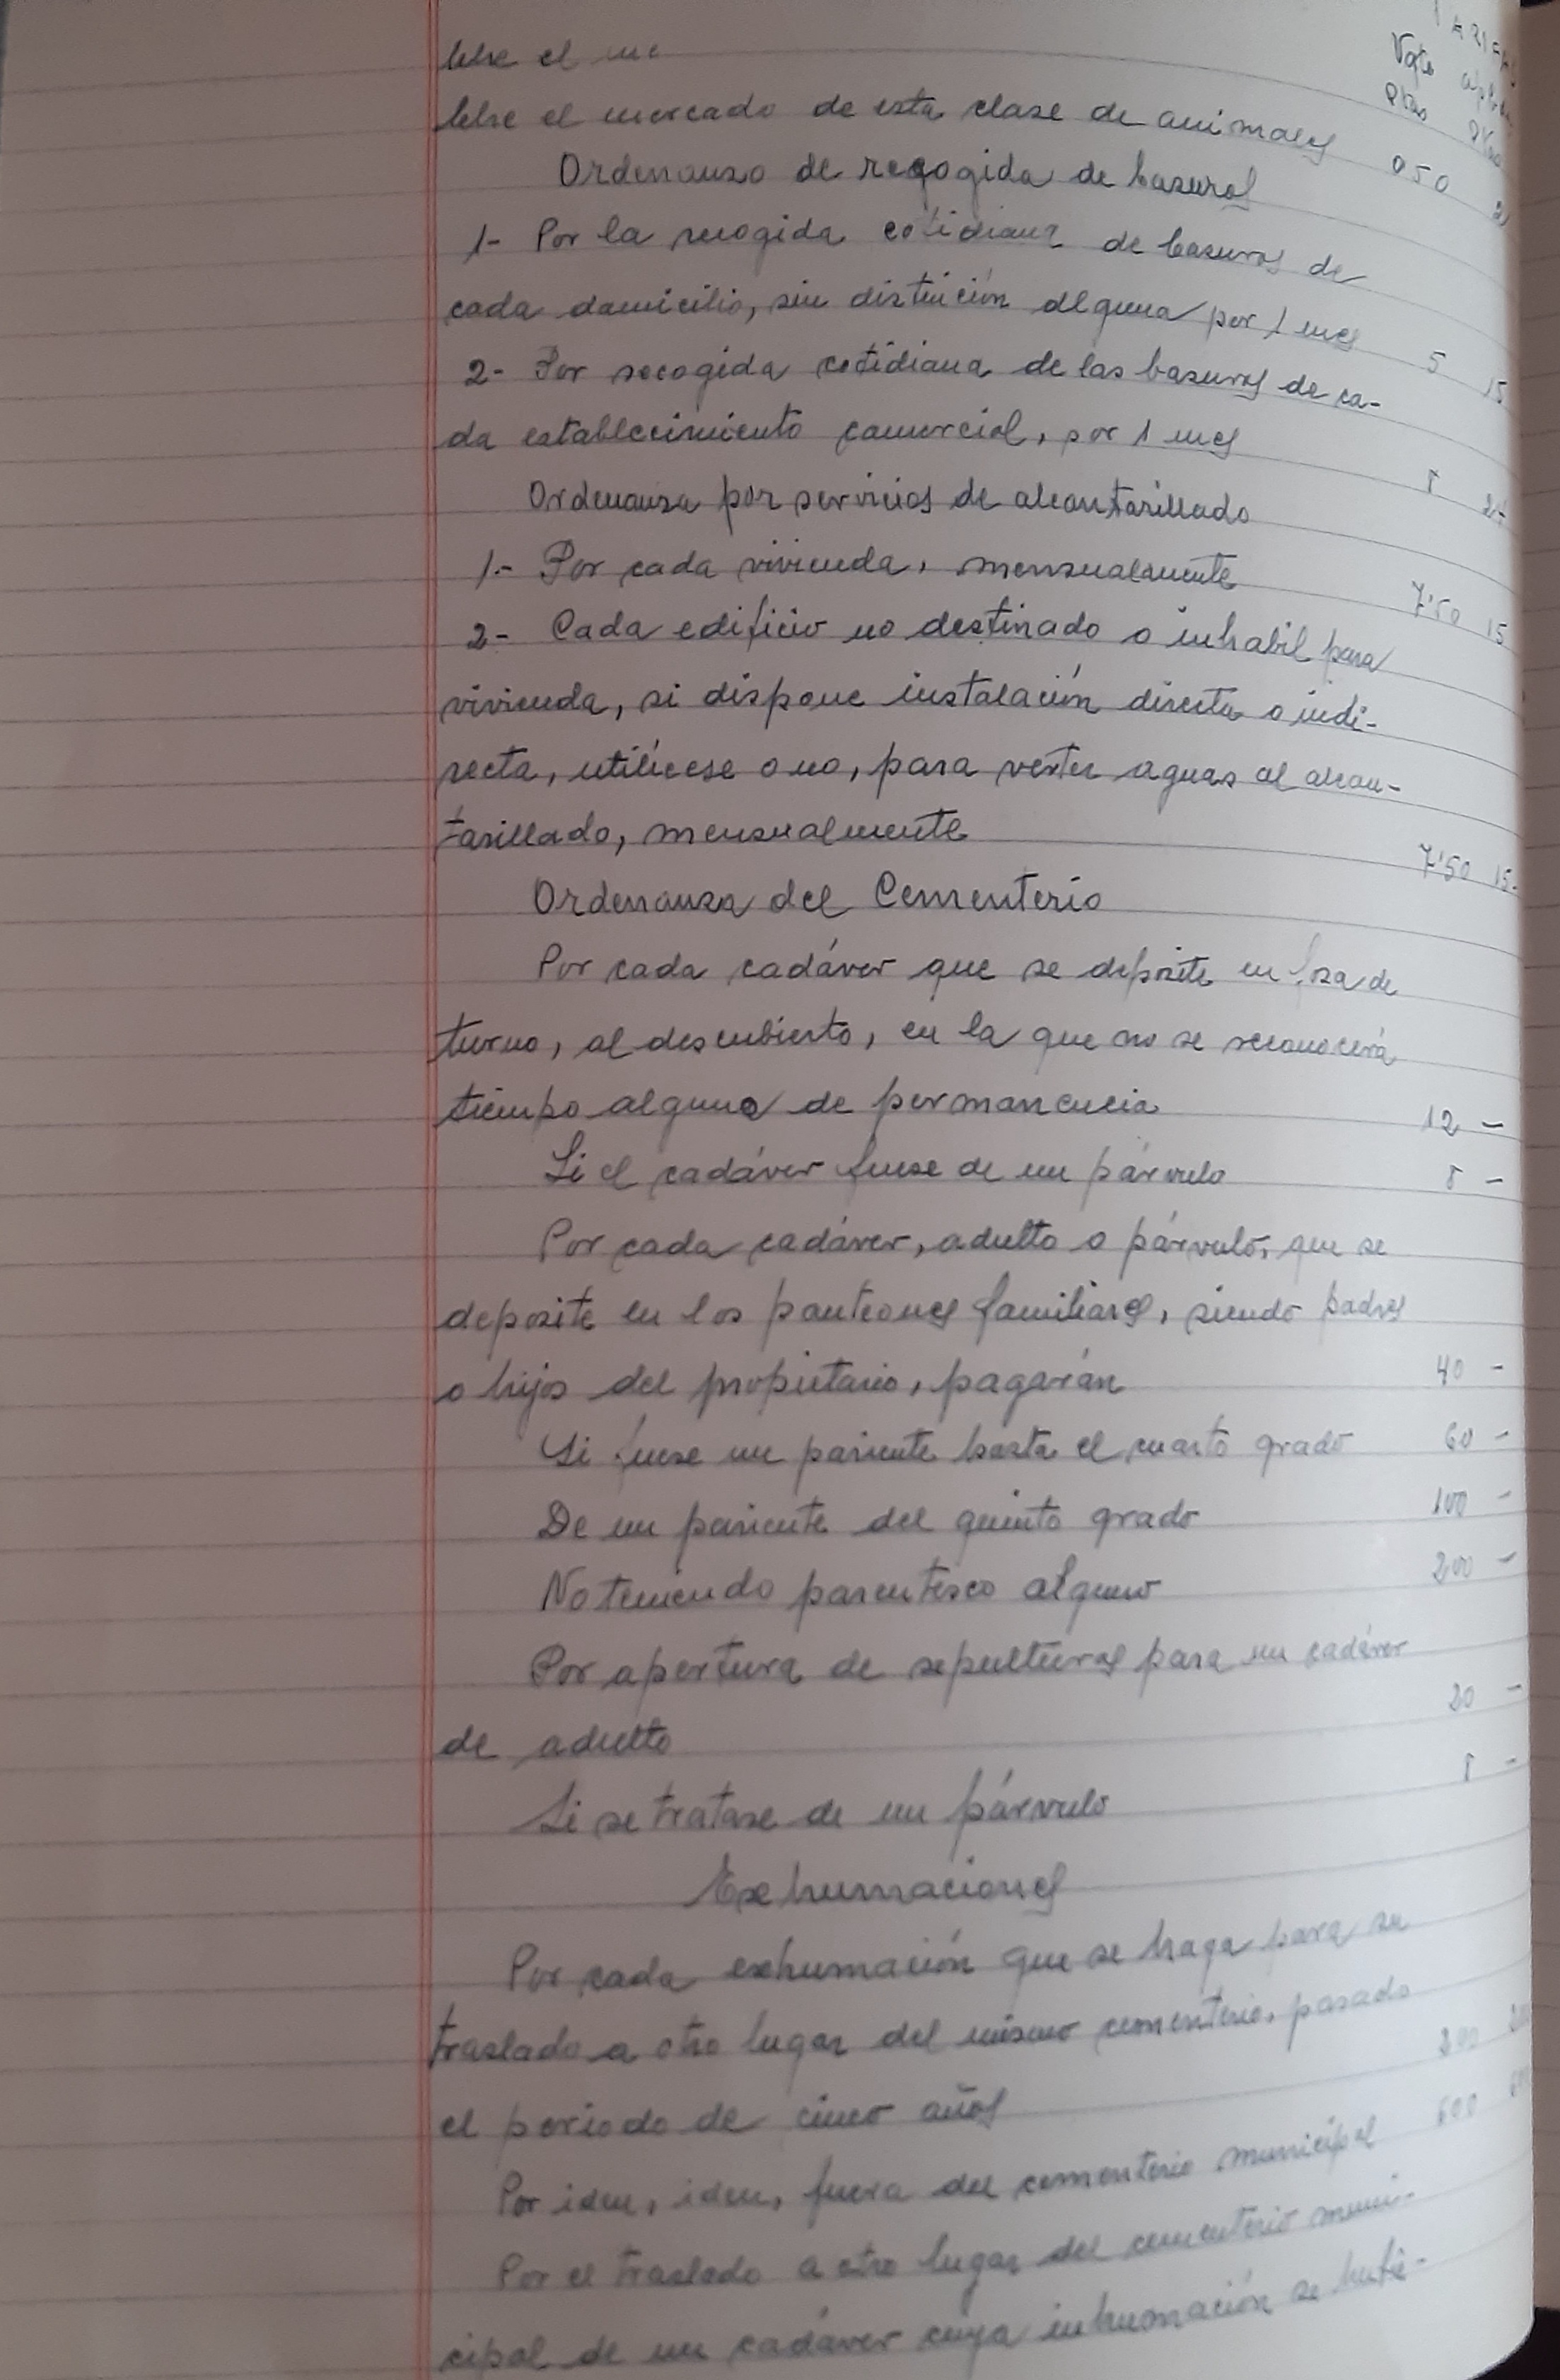 TARIFAS
Vgte apli
Ptas Ptas
lebre el me
lebre el mercado de esta clase de animales 0 50 2
Ordenanza de recogida de basuras
1- Por la recogida cotidiana de basuras de
cada domicilio, sin distinción alguna por 1 mes 5 15
2- Por recogida cotidiana de las basuras de ca-
da establecimiento comercial, por 1 mes 8 24
Ordenanza por servicios de alcantarillado
1.- Por cada vivienda, mensualmente 7'50 15
2- Cada edificio no destinado o inhabil para
vivienda, si dispone instalación directa o indi-
recta, utilícese o no, para verter aguas al alcan-
tarillado, mensualmente 7'50 15-
Ordenanza del Cementerio
Por cada cadáver que se deposite en fosa de
turno, al descubierto, en la que no se reconocerá
tiempo alguno de permanencia 12 -
Si el cadáver fuese de un párvulo 8 -
Por cada cadáver, adulto o párvulo, que se
deposite en los panteones familiares, siendo padres
o hijos del propietario, pagarán 40 -
Si fuese un pariente hasta el cuarto grado 60 -
De un pariente del quinto grado 100 -
No teniendo parentesco alguno 200 -
Por apertura de sepulturas para un cadáver
de adulto 20 -
Si se tratase de un párvulo 8 -
Exhumaciones
Por cada exhumación que se haga para su
traslado a otro lugar del mismo cementerio, pasado
el periodo de cinco años 200
Por idem, idem, fuera del cementerio municipal 600
Por el traslado a otro lugar del cementerio muni-
cipal de un cadáver cuya inhumación se hubie-